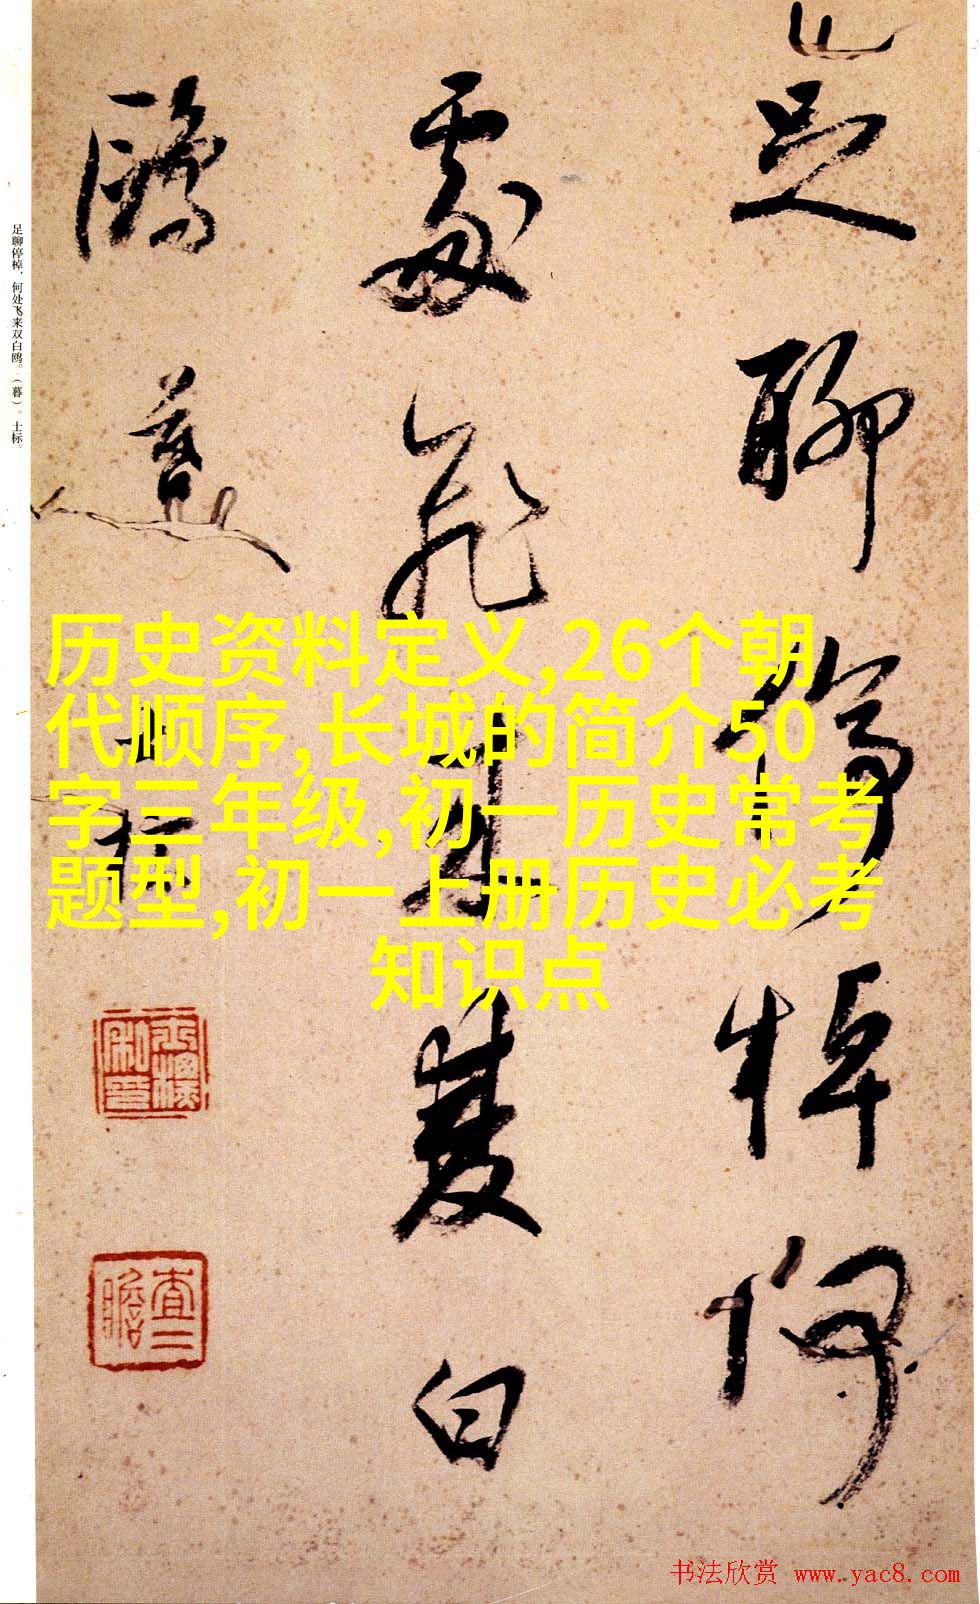 足聊停棹何
處飛来雙白
鷗 暮
士标
足聊停棹，何处飞来双白鸥。（暮）。士标。
历史资料定义,26个朝
代顺序,长城的简介50
字三年级,初一历史常考
题型,初一上册历史必考
知识点
查二瞻
书法欣赏 www.yac8.com